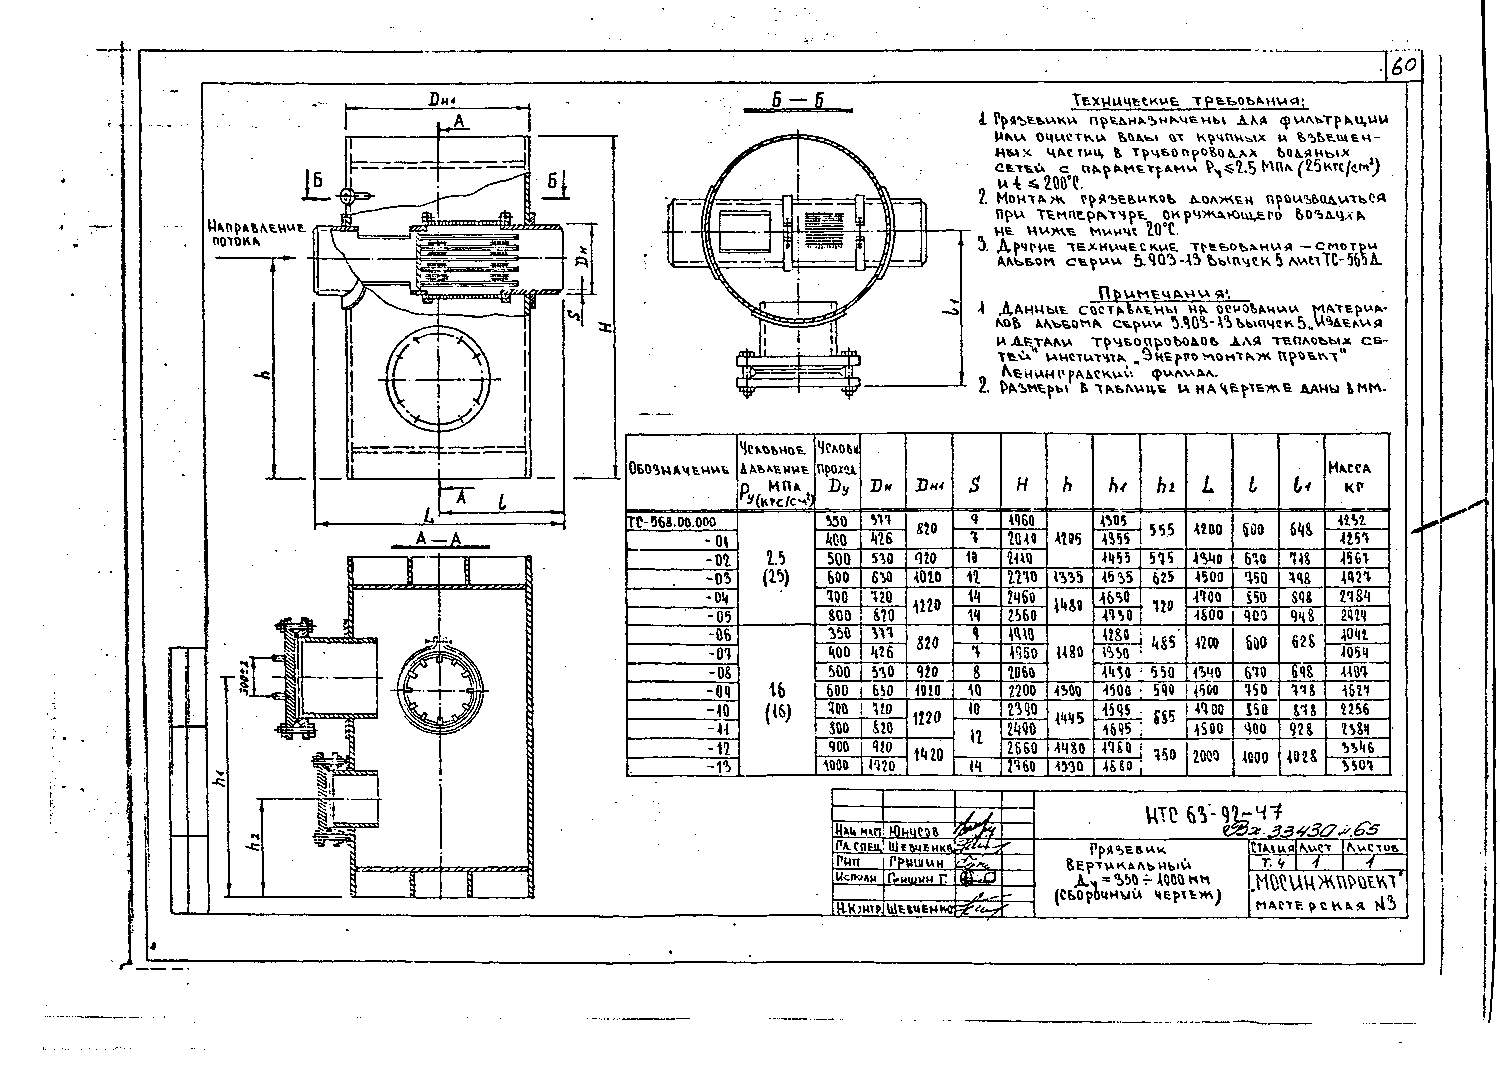 60
Dн1
А
Б
Б
Направление
потока
Dн
S
H
h
А
l
L
Б — Б
l1
Технические требования:
1 Грязевики предназначены для фильтрации
или очистки воды от крупных и взвешен-
ных частиц в трубопроводах водяных
сетей с параметрами Pу ≤ 2.5 МПа (25кгс/см²)
и t ≤ 200°С.
2. Монтаж грязевиков должен производиться
при температуре окружающего воздуха
не ниже минус 20°С.
3. Другие технические требования – смотри
альбом серии 5.903-13 выпуск 5 лист ТС-565Д
Примечания:
1 Данные составлены на основании материа-
лов альбома серии 5.903-13 выпуск 5 „Изделия
и детали трубопроводов для тепловых се-
тей" института „Энергомонтажпроект"
Ленинградский филиал.
2. Размеры в таблице и на чертеже даны в мм.
А — А
h1
h2
Обозначение | Условное давление Pу МПа (кгс/см²) | Условн прохода Dу | Dн | Dн1 | S | H | h | h1 | h2 | L | l | l1 | Масса кг
ТС-568.00.000 | 2.5 (25) | 350 | 377 | 820 | 9 | 1960 | 1205 | 1305 | 555 | 1200 | 600 | 648 | 1252
-01 | 400 | 426 | 7 | 2010 | 1355 | 1257
-02 | 500 | 530 | 920 | 10 | 2110 | 1455 | 575 | 1340 | 670 | 718 | 1567
-03 | 600 | 630 | 1020 | 12 | 2270 | 1335 | 1535 | 625 | 1500 | 750 | 798 | 1927
-04 | 700 | 720 | 1220 | 14 | 2460 | 1480 | 1630 | 720 | 1700 | 850 | 898 | 2784
-05 | 800 | 820 | 14 | 2560 | 1730 | 1800 | 900 | 948 | 2924
-06 | 16 (16) | 350 | 377 | 820 | 9 | 1910 | 1180 | 1280 | 485 | 1200 | 600 | 628 | 1042
-07 | 400 | 426 | 7 | 1960 | 1330 | 1054
-08 | 500 | 530 | 920 | 8 | 2060 | 1430 | 550 | 1340 | 670 | 698
-09 | 600 | 630 | 1020 | 10 | 2200 | 1300 | 1500 | 590 | 1500 | 750 | 778 | 1627
-10 | 700 | 720 | 1220 | 10 | 2390 | 1445 | 1595 | 685 | 1700 | 850 | 878 | 2256
-11 | 800 | 820 | 12 | 2490 | 1695 | 900 | 928 | 2384
-12 | 900 | 920 | 1420 | 2660 | 1480 | 1780 | 750 | 2000 | 1000 | 1028 | 3346
-13 | 1000 | 14 | 2760 | 1530 | 1880 | 3507
НТС 63-92-47
33430 л.65
Нач маст Юнусов
Гл.спец Шевченко
Гип Гришин
Исполн Гришин Г.
Н.контр Шевченко
Грязевик
вертикальный
Ду = 350 ÷ 1000 мм
(сборочный чертеж)
Стадия Лист Листов
Т.ч 1 1
„МОСИНЖПРОЕКТ"
мастерская N3